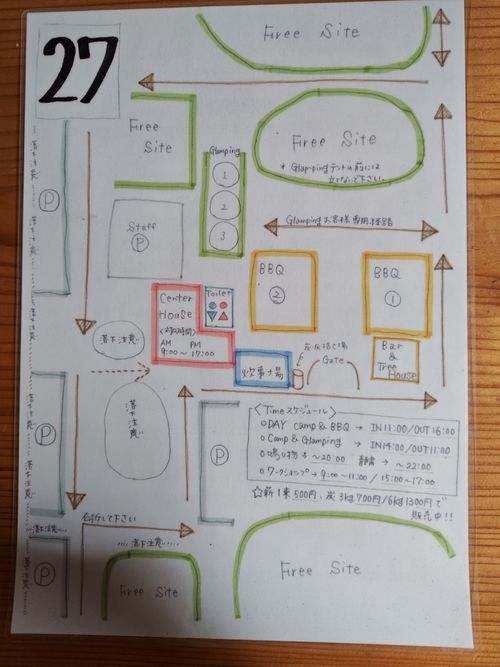 27
Free Site
Free
Site
Free Site
* Glampingテントの前には
立てないで下さい。
Glamping
1
2
3
落下注意
P
Staff
P
Glampingお客様専用
BBQ
②
BBQ
①
Center
House
<対応時間>
AM PM
9:00~17:00
Toilet
炊事場
灰捨て場
Gate
Bar
&
Tree
House
落下注意
落下注意
P
P
<Timeスケジュール>
○DAY Camp & BBQ → IN11:00/OUT16:00
○Camp & Glamping → IN14:00/OUT11:00
○鳴り物 → ~20:00 静粛 → ~22:00
○ワークショップ → 9:00~11:00 / 15:00~17:00
☆薪1束500円、炭3kg700円/6kg1300円で
販売中!!
右折して下さい
落下注意
P
Free Site
Free Site